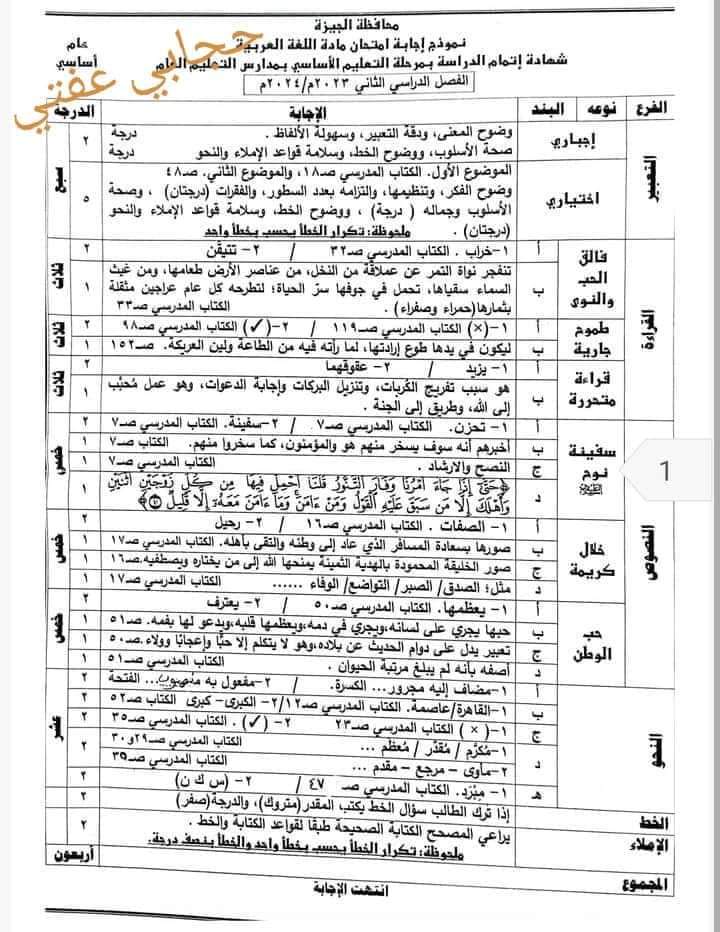 محافظة الجيزة
نموذج إجابة امتحان مادة اللغة العربية
عام
شهادة إتمام الدراسة بمرحلة التعليم الأساسي بمدارس التعليم العام
أساسي
الفصل الدراسي الثاني ٢٠٢٣م/٢٠٢٤م
حجابي عفتي
الفرع نوعه البند الإجابة الدرجة
التعبير إجباري وضوح المعنى، ودقة التعبير، وسهولة الألفاظ . درجة ٢ سبع
صحة الأسلوب، ووضوح الخط، وسلامة قواعد الإملاء والنحو درجة
اختياري الموضوع الأول. الكتاب المدرسي صـ١٨، والموضوع الثاني. صـ٤٨ ٥
وضوح الفكر، وتنظيمها، والتزامه بعدد السطور، والفقرات (درجتان) ، وصحة
الأسلوب وجماله ( درجة) ، ووضوح الخط، وسلامة قواعد الإملاء والنحو
(درجتان) . ملحوظة: تكرار الخطأ يحسب بخطأ واحد
القراءة فالق الحب والنوى أ ١- خراب . الكتاب المدرسي صـ٣٢ / ٢- تتيقن ٢ ثلاث
ب تنفجر نواة التمر عن عملاقة من النخل، من عناصر الأرض طعامها، ومن غيث ١
السماء سقياها، تحمل في جوفها سرّ الحياة؛ لتطرحه كل عام عراجين مثقلة
بثمارها(حمراء وصفراء) . الكتاب المدرسي صـ٣٣
طموح جارية أ ١- (×) الكتاب المدرسي صـ١١٩ / ٢-(✓) الكتاب المدرسي صـ٩٨ ٢ ثلاث
ب ليكون في يدها طوع إرادتها، لما رأته فيه من الطاعة ولين العريكة. صـ١٥٢ ١
قراءة متحررة أ ١- يزيد / ٢- عقوقهما ٢ ثلاث
ب هو سبب تفريج الكُربات، وتنزيل البركات وإجابة الدعوات، وهو عمل مُحبَّب ١
إلى الله، وطريق إلى الجنة .
النصوص سفينة نوح أ ١- تحزن. الكتاب المدرسي صـ٧ / ٢-سفينة. الكتاب المدرسي صـ٧ ٢ خمس
ب أخبرهم أنه سوف يسخر منهم هو والمؤمنون، كما سخروا منهم. الكتاب صـ٧ ١
ج النصح والإرشاد . الكتاب المدرسي صـ٧ ١
د ﴿حَتَّىٰ إِذَا جَاءَ أَمْرُنَا وَفَارَ التَّنُّورُ قُلْنَا احْمِلْ فِيهَا مِن كُلٍّ زَوْجَيْنِ اثْنَيْنِ ١
وَأَهْلَكَ إِلَّا مَن سَبَقَ عَلَيْهِ الْقَوْلُ وَمَنْ ءَامَنَ وَمَا ءَامَنَ مَعَهُۥ إِلَّا قَلِيلٌ﴾
خلال كريمة أ ١- الصفات . الكتاب المدرسي صـ١٦ / ٢- رحيل ٢ خمس
ب صورها بسعادة المسافر الذي عاد إلى وطنه والتقى بأهله. الكتاب المدرسي صـ١٧ ١
ج صور الخليقة المحمودة بالهدية الثمينة يمنحها الله إلى من يختاره ويصطفيه.صـ١٦ ١
د مثل؛ الصدق/ الصبر/ التواضع/ الوفاء ...... الكتاب المدرسي صـ١٧ ١
حب الوطن أ ١- يعظمها. الكتاب المدرسي صـ٥٠ / ٢- يعترف ٢ خمس
ب حبها يجري على لسانه،ويجري في دمه،ويعظمها قلبه،ويدعو لها بفمه. صـ٥١ ١
ج تعبير يدل على دوام الحديث عن بلاده،وهو لا يتكلم إلا حبًّا وإعجابًا وولاء.صـ٥٠ ١
د أصفه بأنه لم يبلغ مرتبة الحيوان . الكتاب المدرسي صـ٥١ ١
النحو أ ١-مضاف إليه مجرور... الكسرة. / ٢-مفعول به منصوب... الفتحة ٢ عشر
ب ١-القاهرة/عاصمة. الكتاب المدرسي صـ١٢/ ٢-الكبرى- كبرى الكتاب صـ٥٢ ٢
ج ١- ( × ) الكتاب المدرسي صـ٢٣ ٢- (✓). الكتاب المدرسي صـ٣٥ ٢
د ١-مُكرَم / مُقدَّر / مُعظَم ... الكتاب المدرسي صـ٢٩و٣٠ ٢
٢-مأوى – مرجع – مقدم ... الكتاب المدرسي صـ٣٥
هـ ١- مِبْرَد. الكتاب المدرسي صـ ٤٧ / ٢- (س ك ن) ٢
الخط إذا ترك الطالب سؤال الخط يكتب المقدر(متروك)، والدرجة(صفر) ٢
الإملاء يراعي المصحح الكتابة الصحيحة طبقًا لقواعد الكتابة والخط . ٢
ملحوظة: تكرار الخطأ يحسب بخطأ واحد والخطأ بنصف درجة.
المجموع أربعون
انتهت الإجابة
1